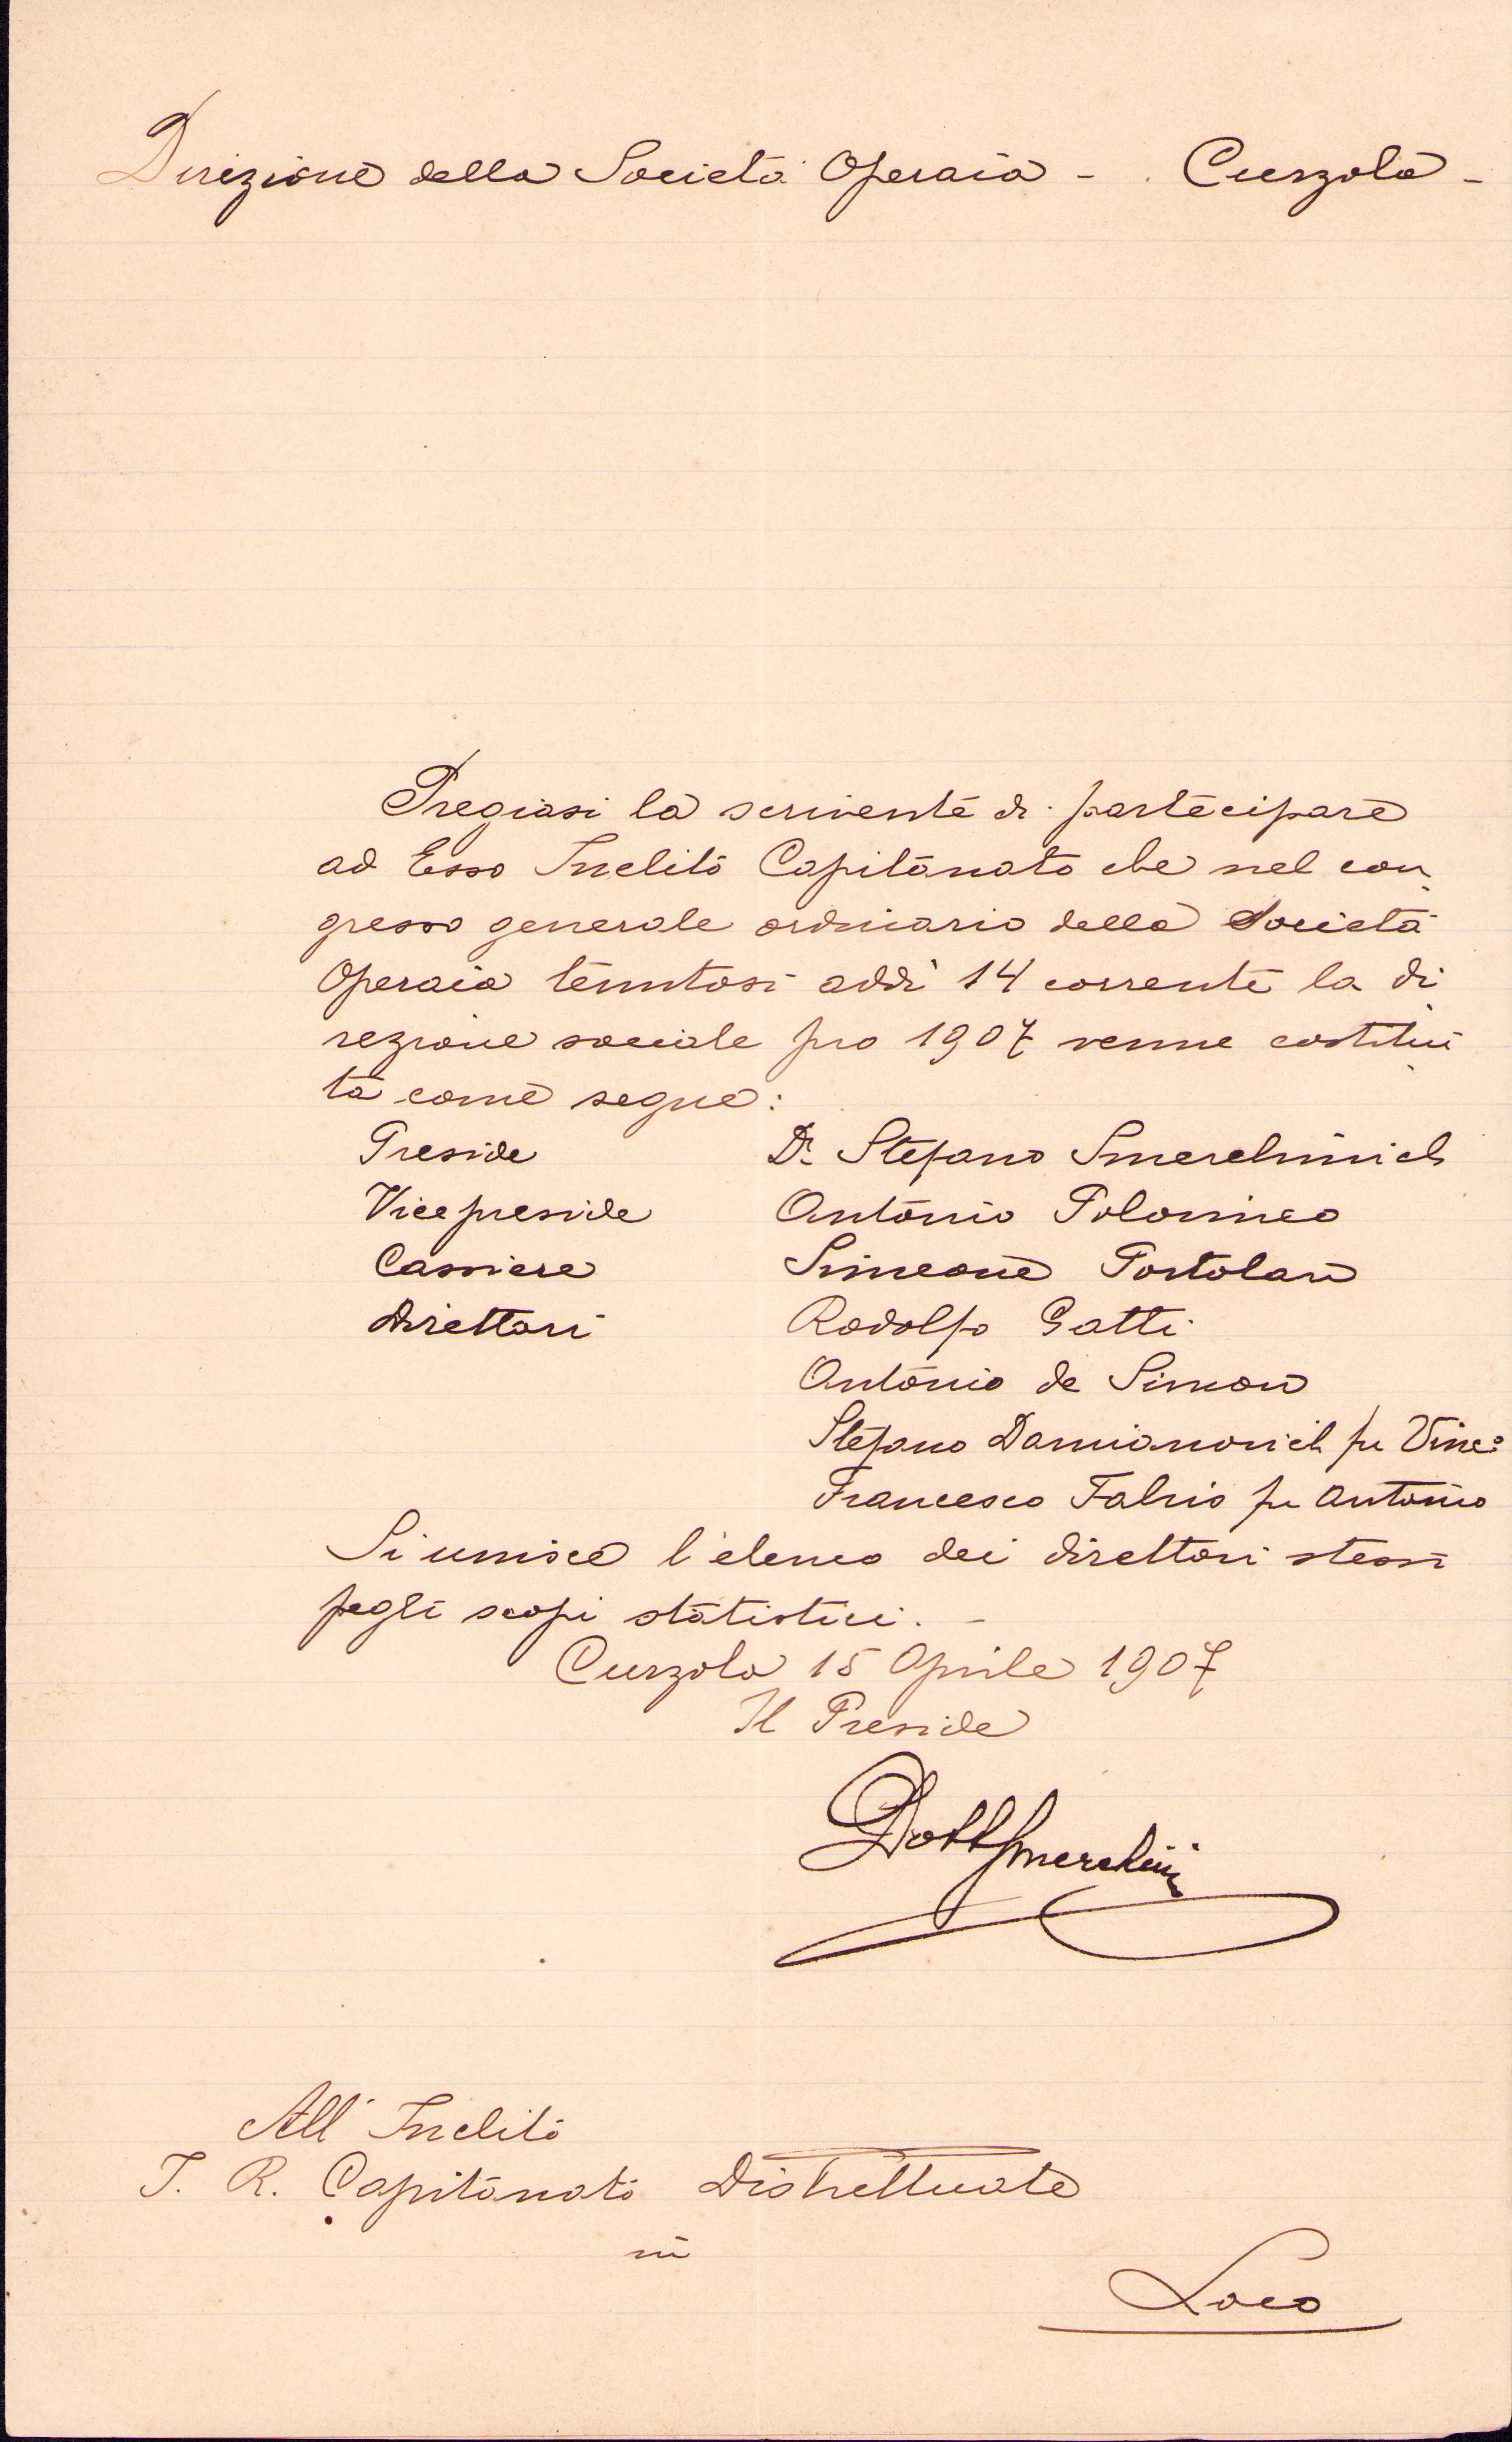 Direzione della Società Operaia - Curzola -
Pregiasi la scrivente di partecipare
ad Esso Inclito Capitanato che nel con
gresso generale ordinario della Società
Operaia tenutosi addì 14 corrente la di
rezione sociale pro 1907 venne costitui
ta come segue:
Preside Dr. Stefano Smerchinich
Vicepreside Antonio Polovineo
Cassiere Simeone Portolan
Direttori Rodolfo Gatti
Antonio de Simon
Stefano Damianovich fu Vinc:o
Francesco Fabris fu Antonio
Si unisce l'elenco dei direttori stessi
pegli scopi statistici. -
Curzola 15 Aprile 1907
Il Preside
Dott Smerchinich
All' Inclito
I. R. Capitanato Distrettuale
in
Loco